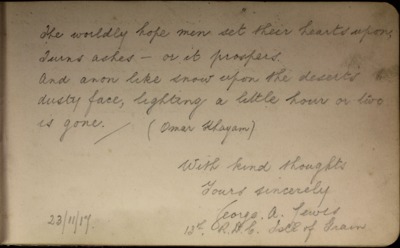 The worldly hope men set their hearts upon,
Turns ashes – or it prospers.
And anon like snow upon the deserts
dusty face, lighting a little hour or two
is gone. (Omar Khayam)
With kind thoughts
Yours sincerely
George. A. Lewis
23/11/17. Isle of Grain